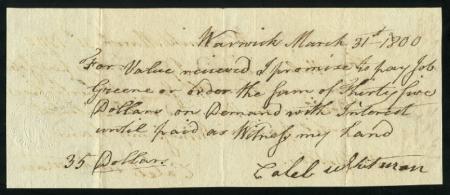 Warwick March 31st 1800
For Value received I promise to pay Job
Greene or order the sum of Thirty five
Dollars on Demand with Interest
until paid as Witness my hand
35 Dollars
Caleb